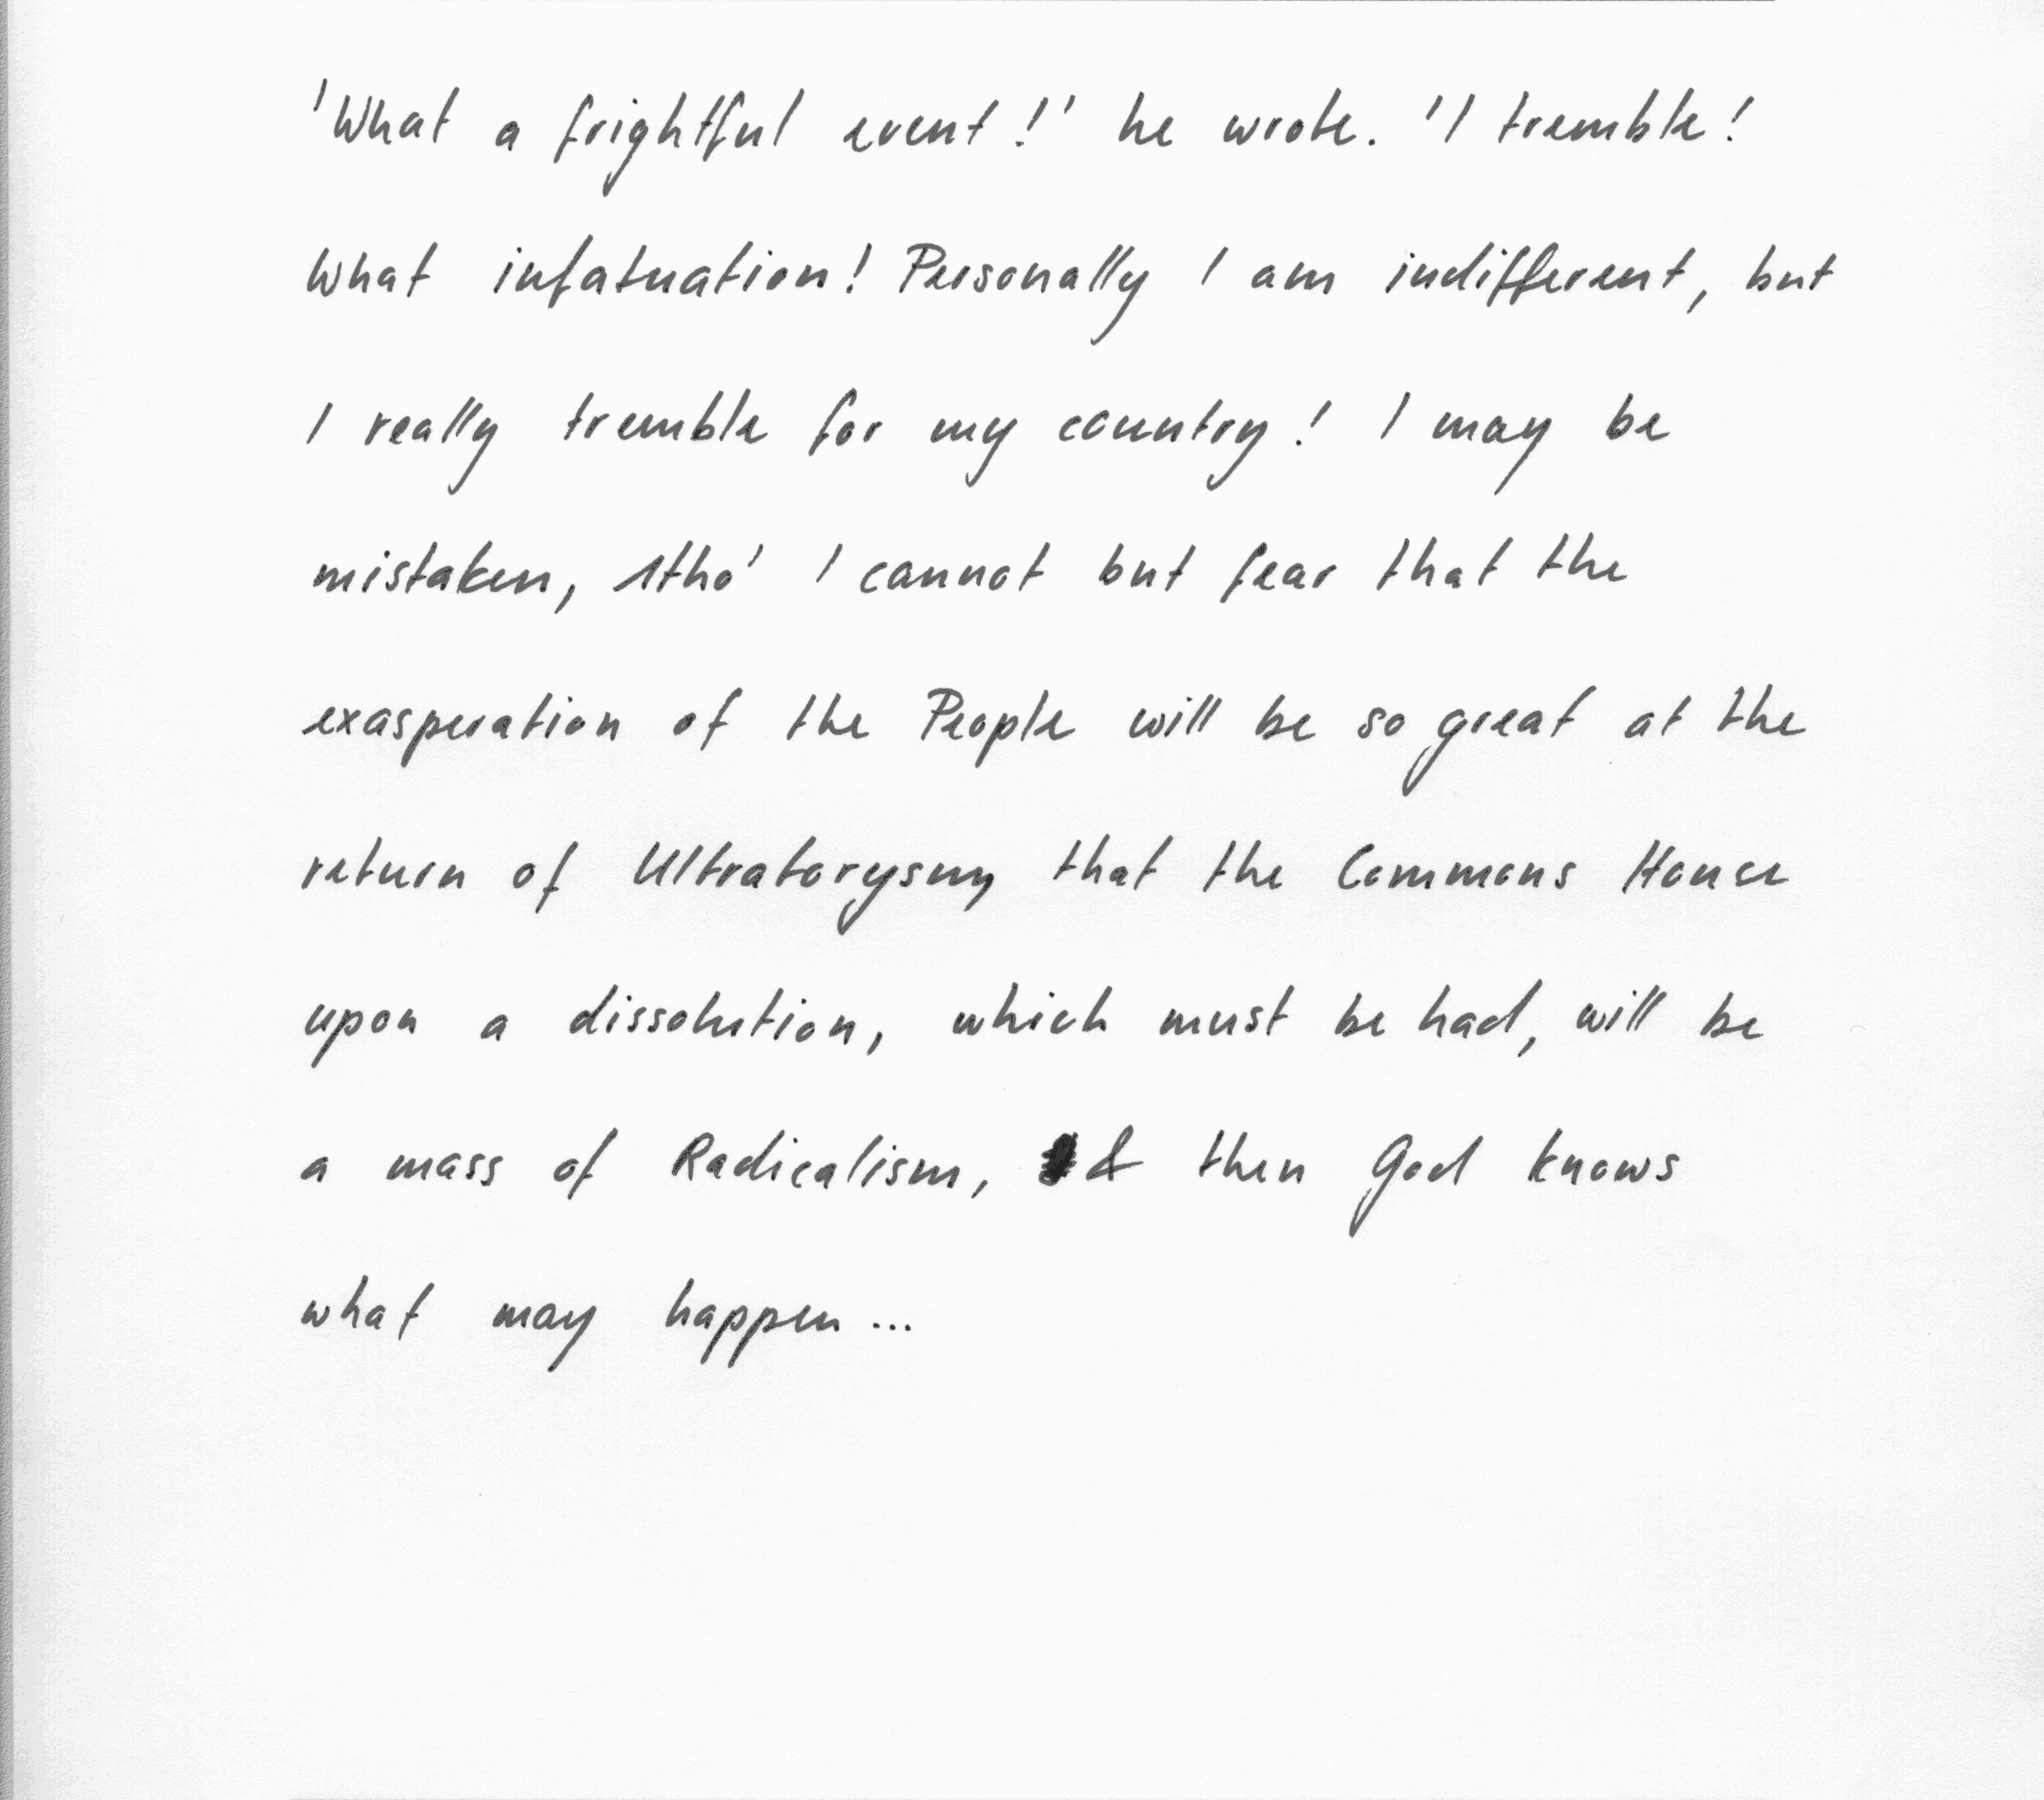 'What a frightful event!' he wrote. 'I tremble!
What infatuation! Personally I am indifferent, but
I really tremble for my country! I may be
mistaken, 1tho' I cannot but fear that the
exasperation of the People will be so great at the
return of Ultratorysm, that the Commons House
upon a dissolution, which must be had, will be
a mass of Radicalism, & then God knows
what may happen...